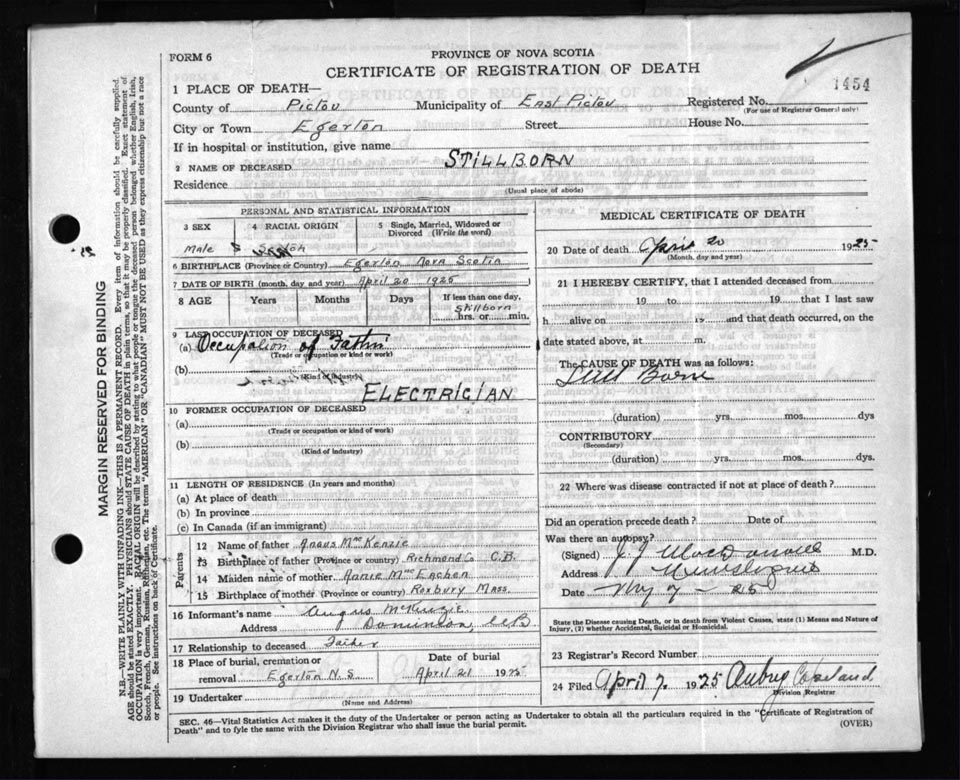 PROVINCE OF NOVA SCOTIA
FORM 6
CERTIFICATE OF REGISTRATION OF DEATH
1454
1 PLACE OF DEATH—
County of Pictou Municipality of East Pictou Registered No.
(For use of Registrar General only)
City or Town Egerton Street House No.
If in hospital or institution, give name
2 NAME OF DECEASED STILLBORN
Residence
(Usual place of abode)
MARGIN RESERVED FOR BINDING
N.B.—WRITE PLAINLY WITH UNFADING INK—THIS IS A PERMANENT RECORD. Every item of information should be carefully supplied.
AGE should be stated EXACTLY. PHYSICIANS should STATE CAUSE OF DEATH in plain terms, so that it may be properly classified. Exact statement of
OCCUPATION is very important. RACIAL ORIGIN will be described by stating to what people or tongue the deceased person belonged whether English, Irish,
Scotch, French, German, Russian, Ruthenian, etc. The terms "AMERICAN" OR "CANADIAN" MUST NOT BE USED as they express citizenship but not a race
or people. See instructions on back of Certificate.
PERSONAL AND STATISTICAL INFORMATION
3 SEX 4 RACIAL ORIGIN 5 Single, Married, Widowed or Divorced (Write the word)
Male Scotch
6 BIRTHPLACE (Province or Country) Egerton Nova Scotia
7 DATE OF BIRTH (month, day and year) April 20 1925
8 AGE Years Months Days If less than one day,
Stillborn
hrs. or min.
9 LAST OCCUPATION OF DECEASED
(a) Occupation of Father
(Trade or occupation or kind of work)
(b)
(Kind of industry)
ELECTRICIAN
10 FORMER OCCUPATION OF DECEASED
(a)
(Trade or occupation or kind of work)
(b)
(Kind of industry)
11 LENGTH OF RESIDENCE (In years and months)
(a) At place of death
(b) In province
(c) In Canada (if an immigrant)
Parents
12 Name of father Angus MacKenzie
13 Birthplace of father (Province or country) Richmond Co C.B.
14 Maiden name of mother Annie MacEachen
15 Birthplace of mother (Province or country) Roxbury Mass.
16 Informant's name Angus McKenzie
Address Dominion, C.B
17 Relationship to deceased Father
18 Place of burial, cremation or removal Egerton N.S
Date of burial
April 21 1925
19 Undertaker
(Name and Address)
MEDICAL CERTIFICATE OF DEATH
20 Date of death April 20 1925
(Month, day and year)
21 I HEREBY CERTIFY, that I attended deceased from
19 to 19 that I last saw
h alive on 19 and that death occurred, on the
date stated above, at m.
The CAUSE OF DEATH was as follows:
Still Born
(duration) yrs. mos. dys
CONTRIBUTORY
(Secondary)
(duration) yrs. mos. dys.
22 Where was disease contracted if not at place of death?
Did an operation precede death? Date of
Was there an autopsy?
(Signed) J J MacDonald M.D.
Address
Date May 7 - 25
State the Disease causing Death, or in death from Violent Causes, state (1) Means and Nature of
Injury, (2) whether Accidental, Suicidal or Homicidal.
23 Registrar's Record Number
24 Filed April 7. 1925 Aubrey Copeland
Division Registrar
SEC. 46—Vital Statistics Act makes it the duty of the Undertaker or person acting as Undertaker to obtain all the particulars required in the "Certificate of Registration of
Death" and to fyle the same with the Division Registrar who shall issue the burial permit.
(OVER)